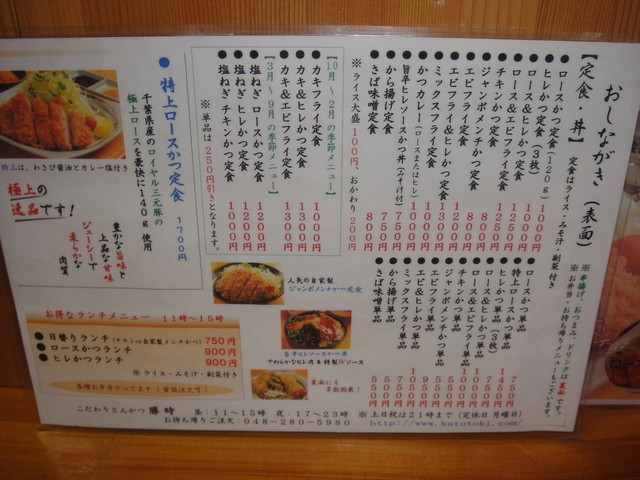 おしながき（表面）
※串揚げ、おつまみ、ドリンクは裏面です。
※お弁当・お持ち帰りメニューもございます。
【定食・丼】 定食はライス・みそ汁・副菜付き
● ロースかつ定食(120g) 1000円
● ヒレかつ定食(3枚) 1000円
● ロース＆ヒレかつ定食 1250円
● チキンかつ定食 850円
● ジャンボメンチかつ定食 800円
● エビフライ定食 1200円
● エビフライ＆ヒレかつ定食
● ミックスフライ定食
● かつカレー(ロースまたはヒレ)
● 旨辛ヒレソースかつ丼(みそ汁付) 750円
● から揚げ定食 750円
● さば味噌定食 800円
※ライス大盛100円、おかわり200円
● 特上ロースかつ単品
● ロースかつ単品
● ヒレかつ単品(3枚)
● ロース＆ヒレかつ単品
● チキンかつ単品
● ジャンボメンチかつ単品
● エビフライ単品
● エビ＆ヒレかつ単品
● ミックスフライ単品
● から揚げ単品
● さば味噌単品
【10月～2月の季節メニュー】
● カキフライ定食 1000円
● カキ＆ヒレかつ定食 1300円
● カキ＆エビフライ定食 1300円
【3月～9月の季節メニュー】
● 塩ねぎ ロースかつ定食 1200円
● 塩ねぎ ヒレかつ定食 1200円
● 塩ねぎ チキンかつ定食 1000円
※単品は250円引きとなります。
● 特上ロースかつ定食 1700円
千葉県産のロイヤル三元豚の
極上ロースを豪快に140g 使用
特上は、わさび醤油とカレー塩付き
極上の
逸品です！
豊かな旨味と
上品な甘味
ジューシーで
柔らかな
肉質
人気の自家製
ジャンボメンチかつ定食
旨辛ヒレソースかつ丼
やわらかなヒレ肉＆特製Wソース
裏面にも
多数掲載！
お得なランチメニュー 11時～15時
● 日替りランチ(チキンor自家製メンチかつ) 750円
● ロースかつランチ 900円
● ヒレかつランチ 900円
※ ライス・みそ汁・副菜付き
各種お弁当やってます（電話注文可）
こだわりとんかつ 勝時 昼：11～15時 夜：17～23時 ※土日祝は21時まで(定休日 月曜日)
お持ち帰りご注文：048-280-5980 http://www.katutoki.com/